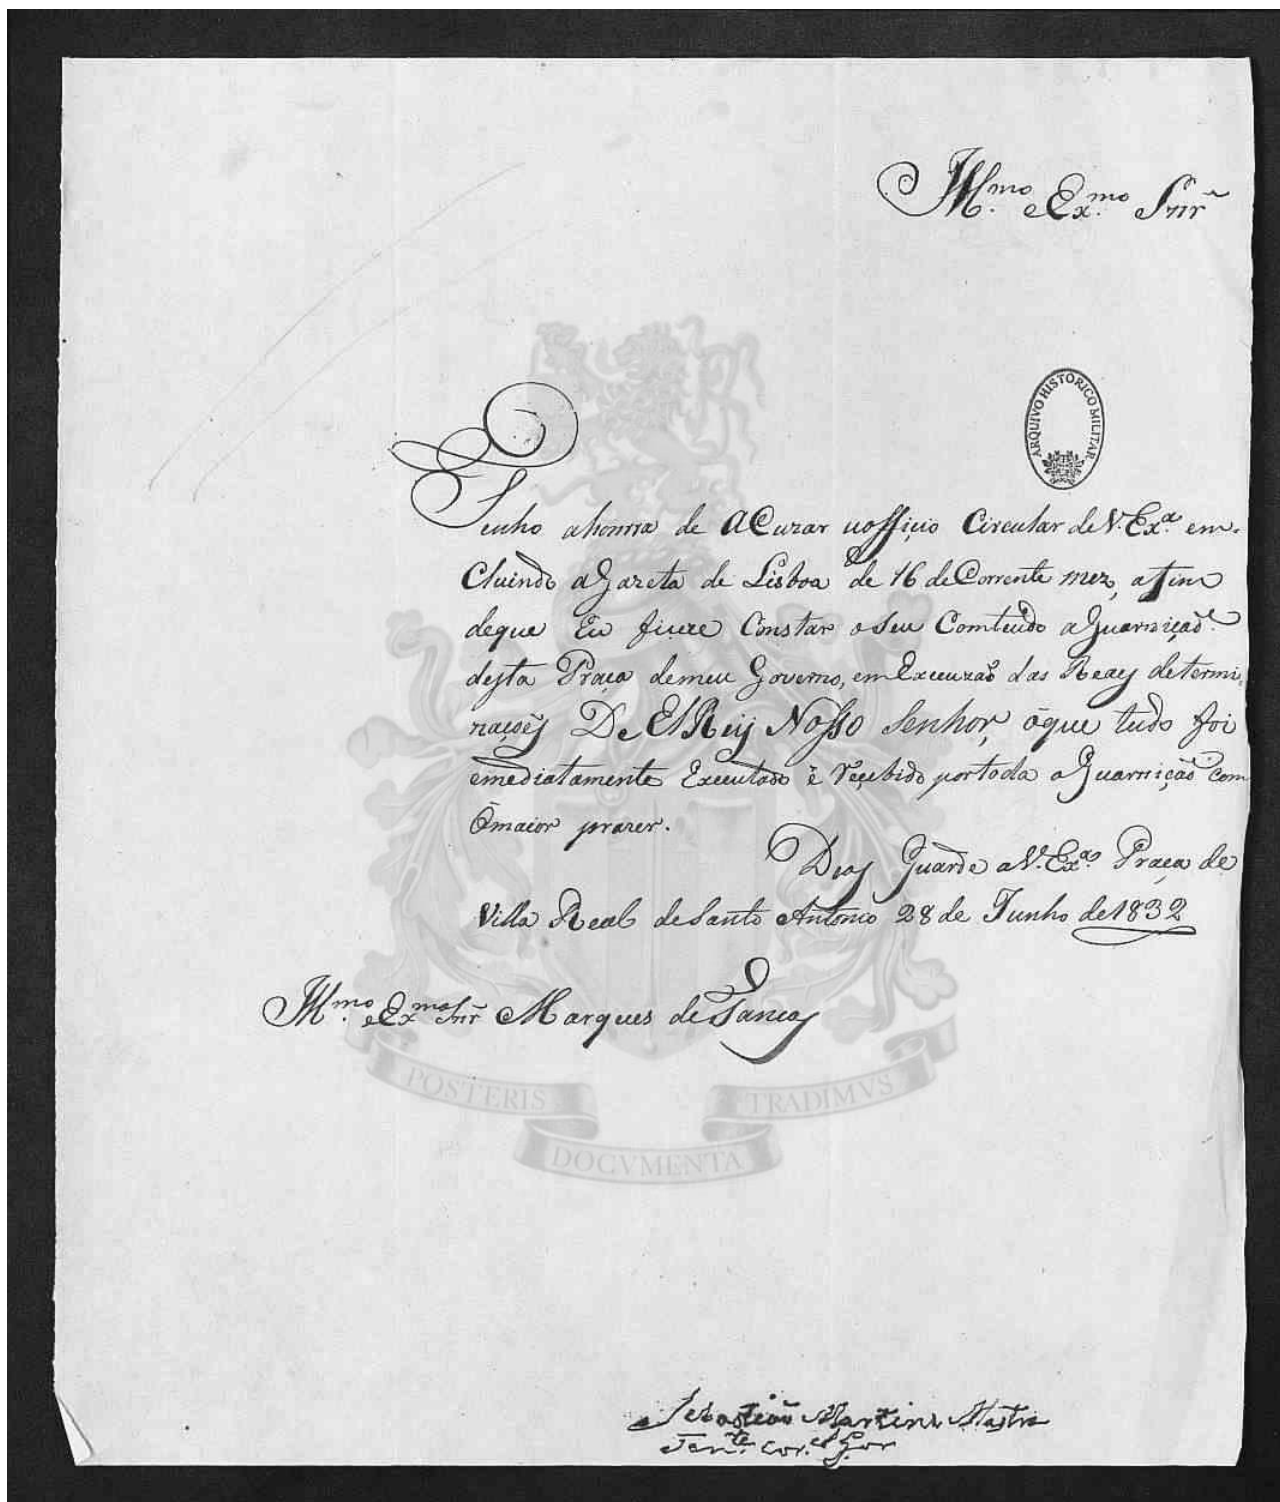 Ill.mo e Ex.mo Snr
ARQUIVO HISTORICO MILITAR
Tenho ahonrra de aCuzar uofficio Circular de V. Ex.a em-
Cluindo aGazeta de Lisboa de 16 de Corrente mez, afim
deque Eu fizece Constar oSeu Comteudo aGuarnição
desta Praça demeu Governo, em Execuzaõ das Reaes determi-
naçoẽs De El Rey Nosso Senhor, ôque tudo foi
emediatamente Executado ê reçebido portoda aGuarniçaõ Com
Ômaior prazer.
Deos Guarde aV. Ex.a Praça de
Villa Real deSanto Antonio 28 de Junho de 1832
Ill.mo e Ex.mo Snr Marques de Tancos
POSTERIS TRADIMVS
DOCVMENTA
Sebastiaõ Martins Mestre
Ten.te Cor.el Gor